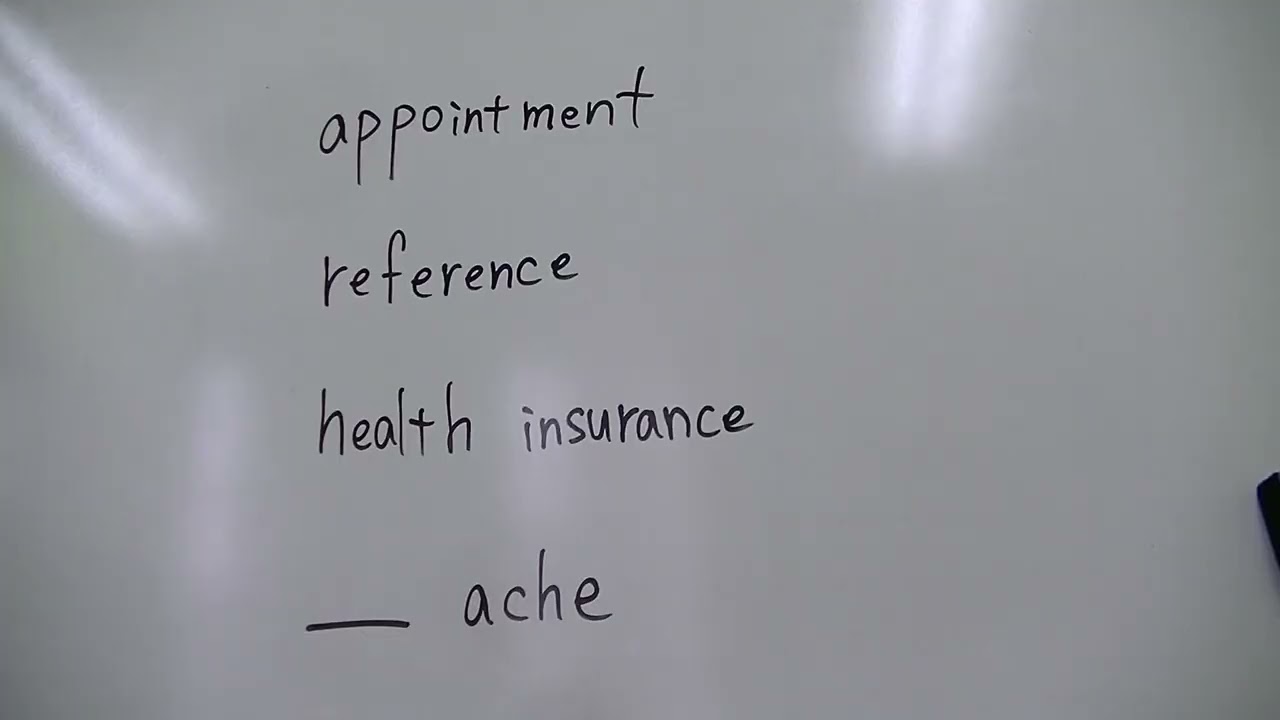 appointment
reference
health insurance
__ ache